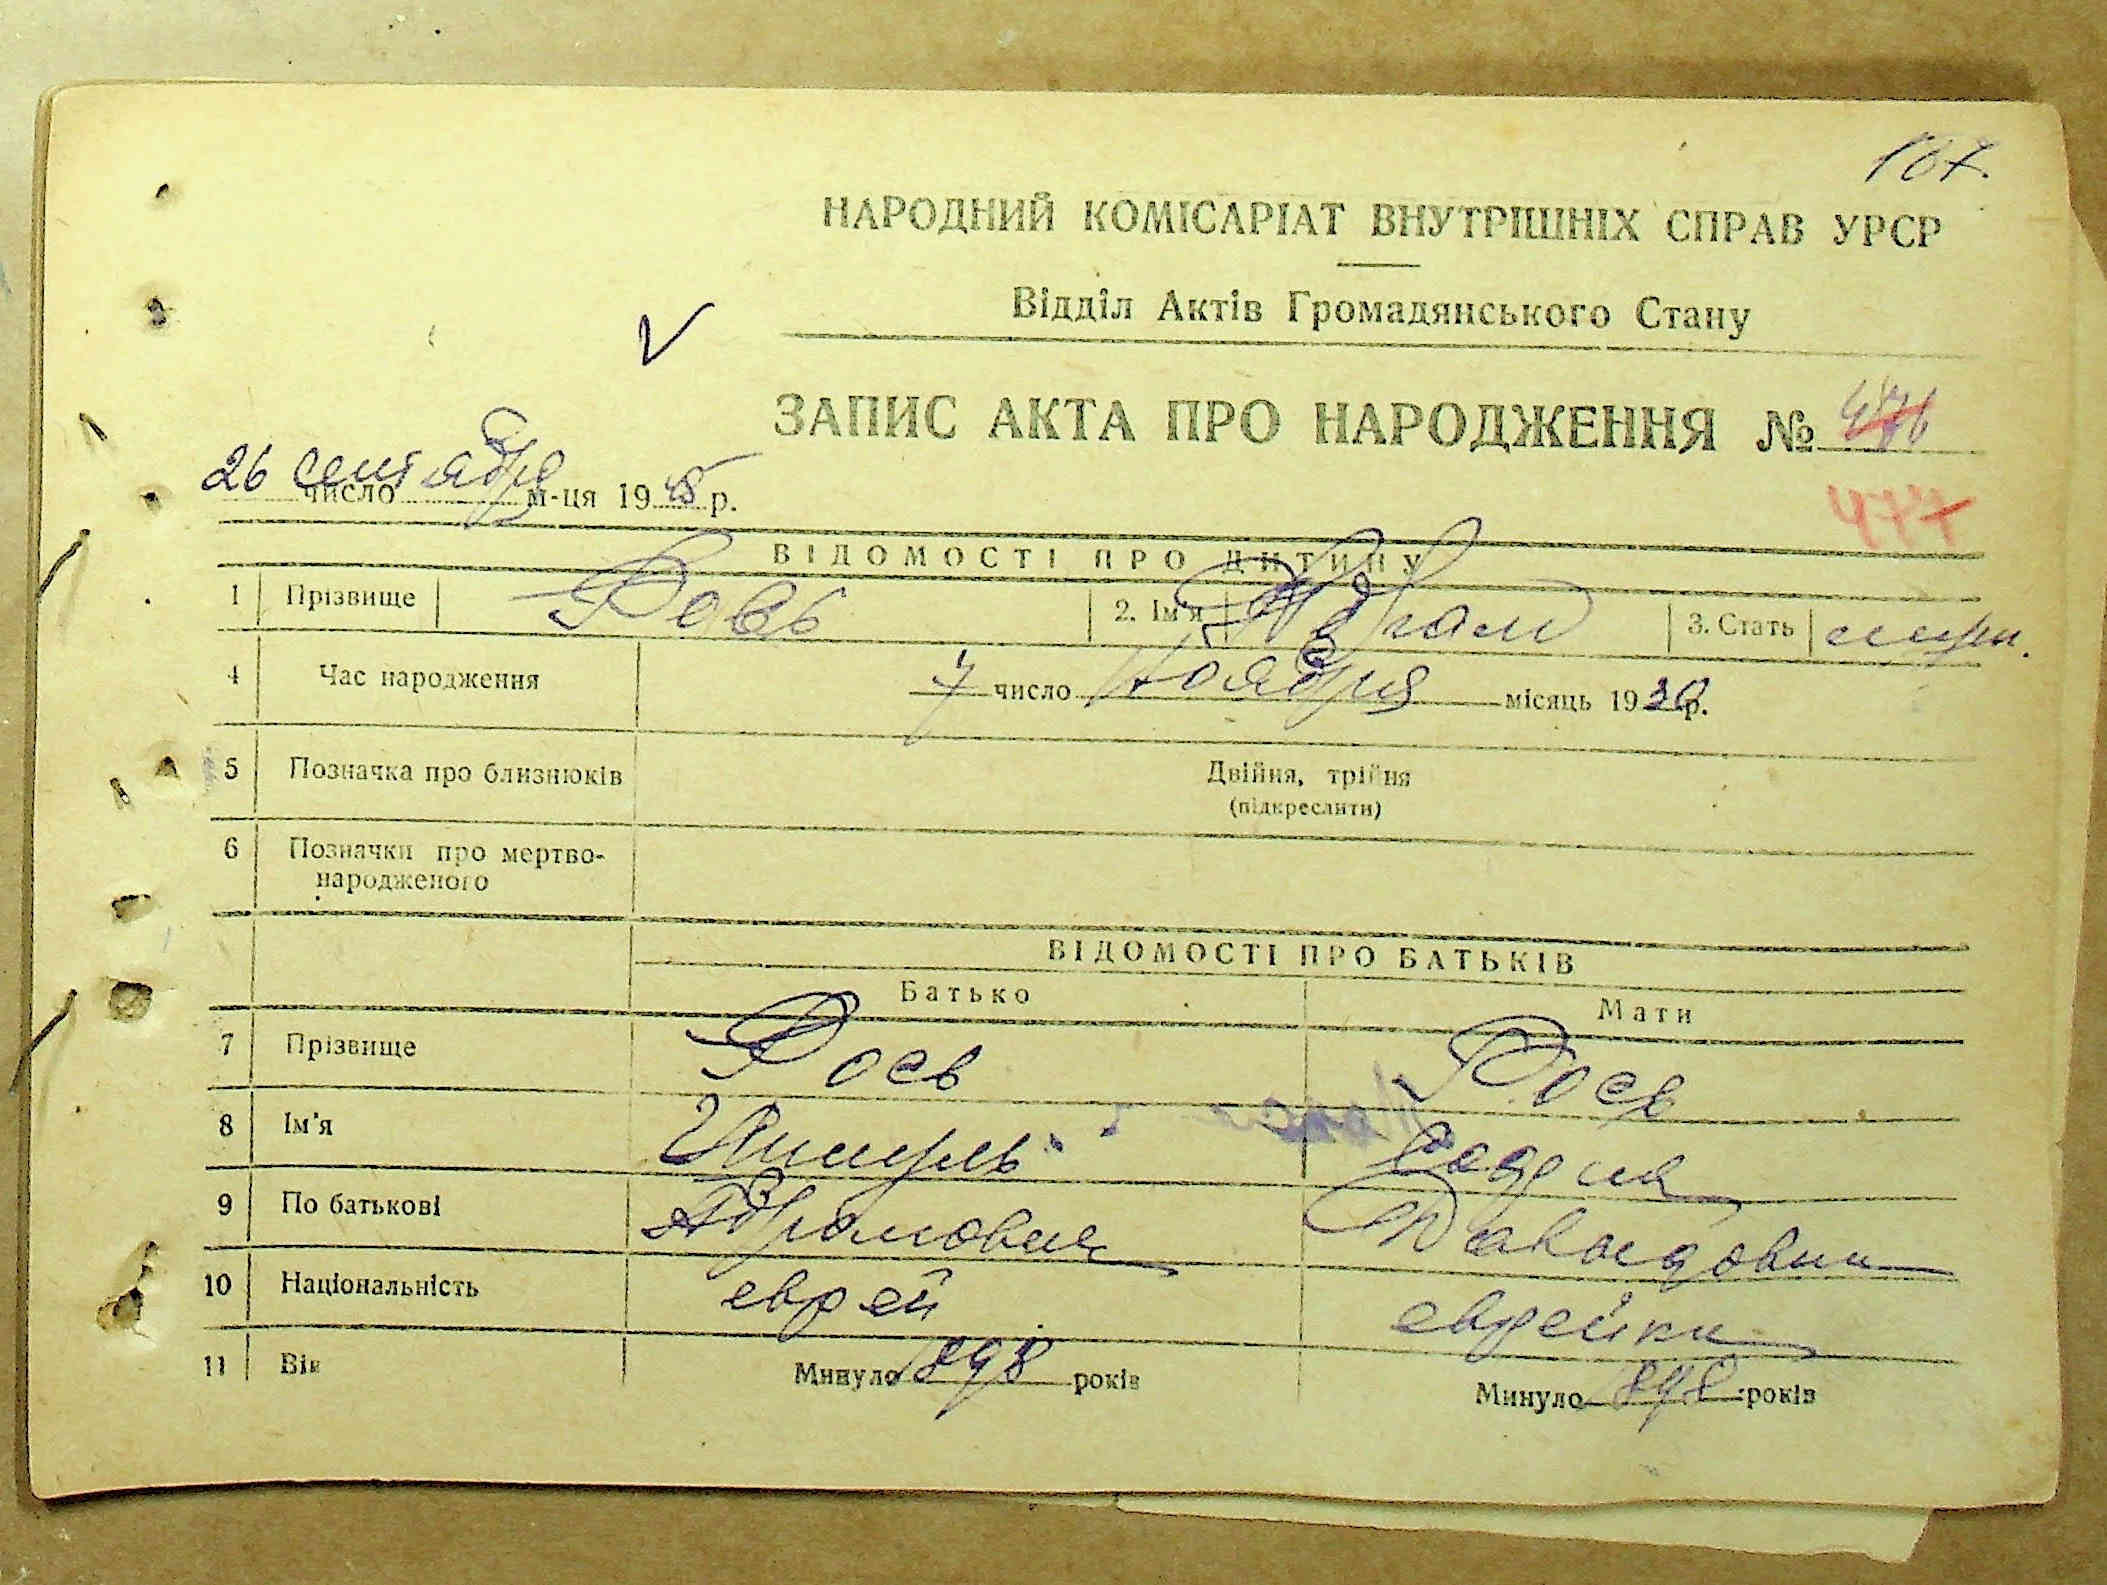 107.
НАРОДНИЙ КОМІСАРІАТ ВНУТРІШНІХ СПРАВ УРСР
Відділ Актів Громадянського Стану
ЗАПИС АКТА ПРО НАРОДЖЕННЯ № 476
477
26 сентября число м-ця 1945 р.
ВІДОМОСТІ ПРО ДИТИНУ
1 Прізвище 2. Ім'я Абрам 3. Стать
4 Час народження 7 число Ноября місяць 1930 р.
5 Позначка про близнюків Двійня, трійня
(підкреслити)
6 Позначки про мертво-
народженого
ВІДОМОСТІ ПРО БАТЬКІВ
Батько Мати
7 Прізвище
8 Ім'я
9 По батькові Абрамович Давидовна
10 Національність еврей еврейка
11 Вік Минуло 1898 років Минуло 1898 років